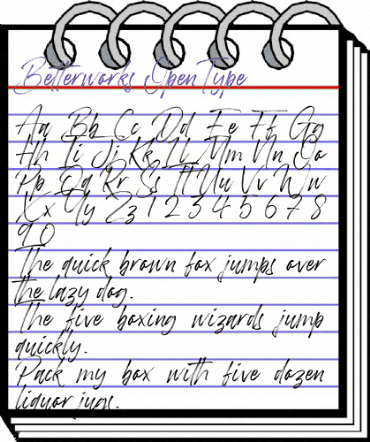 Betterworks OpenType
Aa Bb Cc Dd Ee Ff Gg
Hh Ii Jj Kk Ll Mm Nn Oo
Pp Qq Rr Ss Tt Uu Vv Ww
Xx Yy Zz 1 2 3 4 5 6 7 8
9 0
The quick brown fox jumps over
the lazy dog.
The five boxing wizards jump
quickly.
Pack my box with five dozen
liquor jugs.